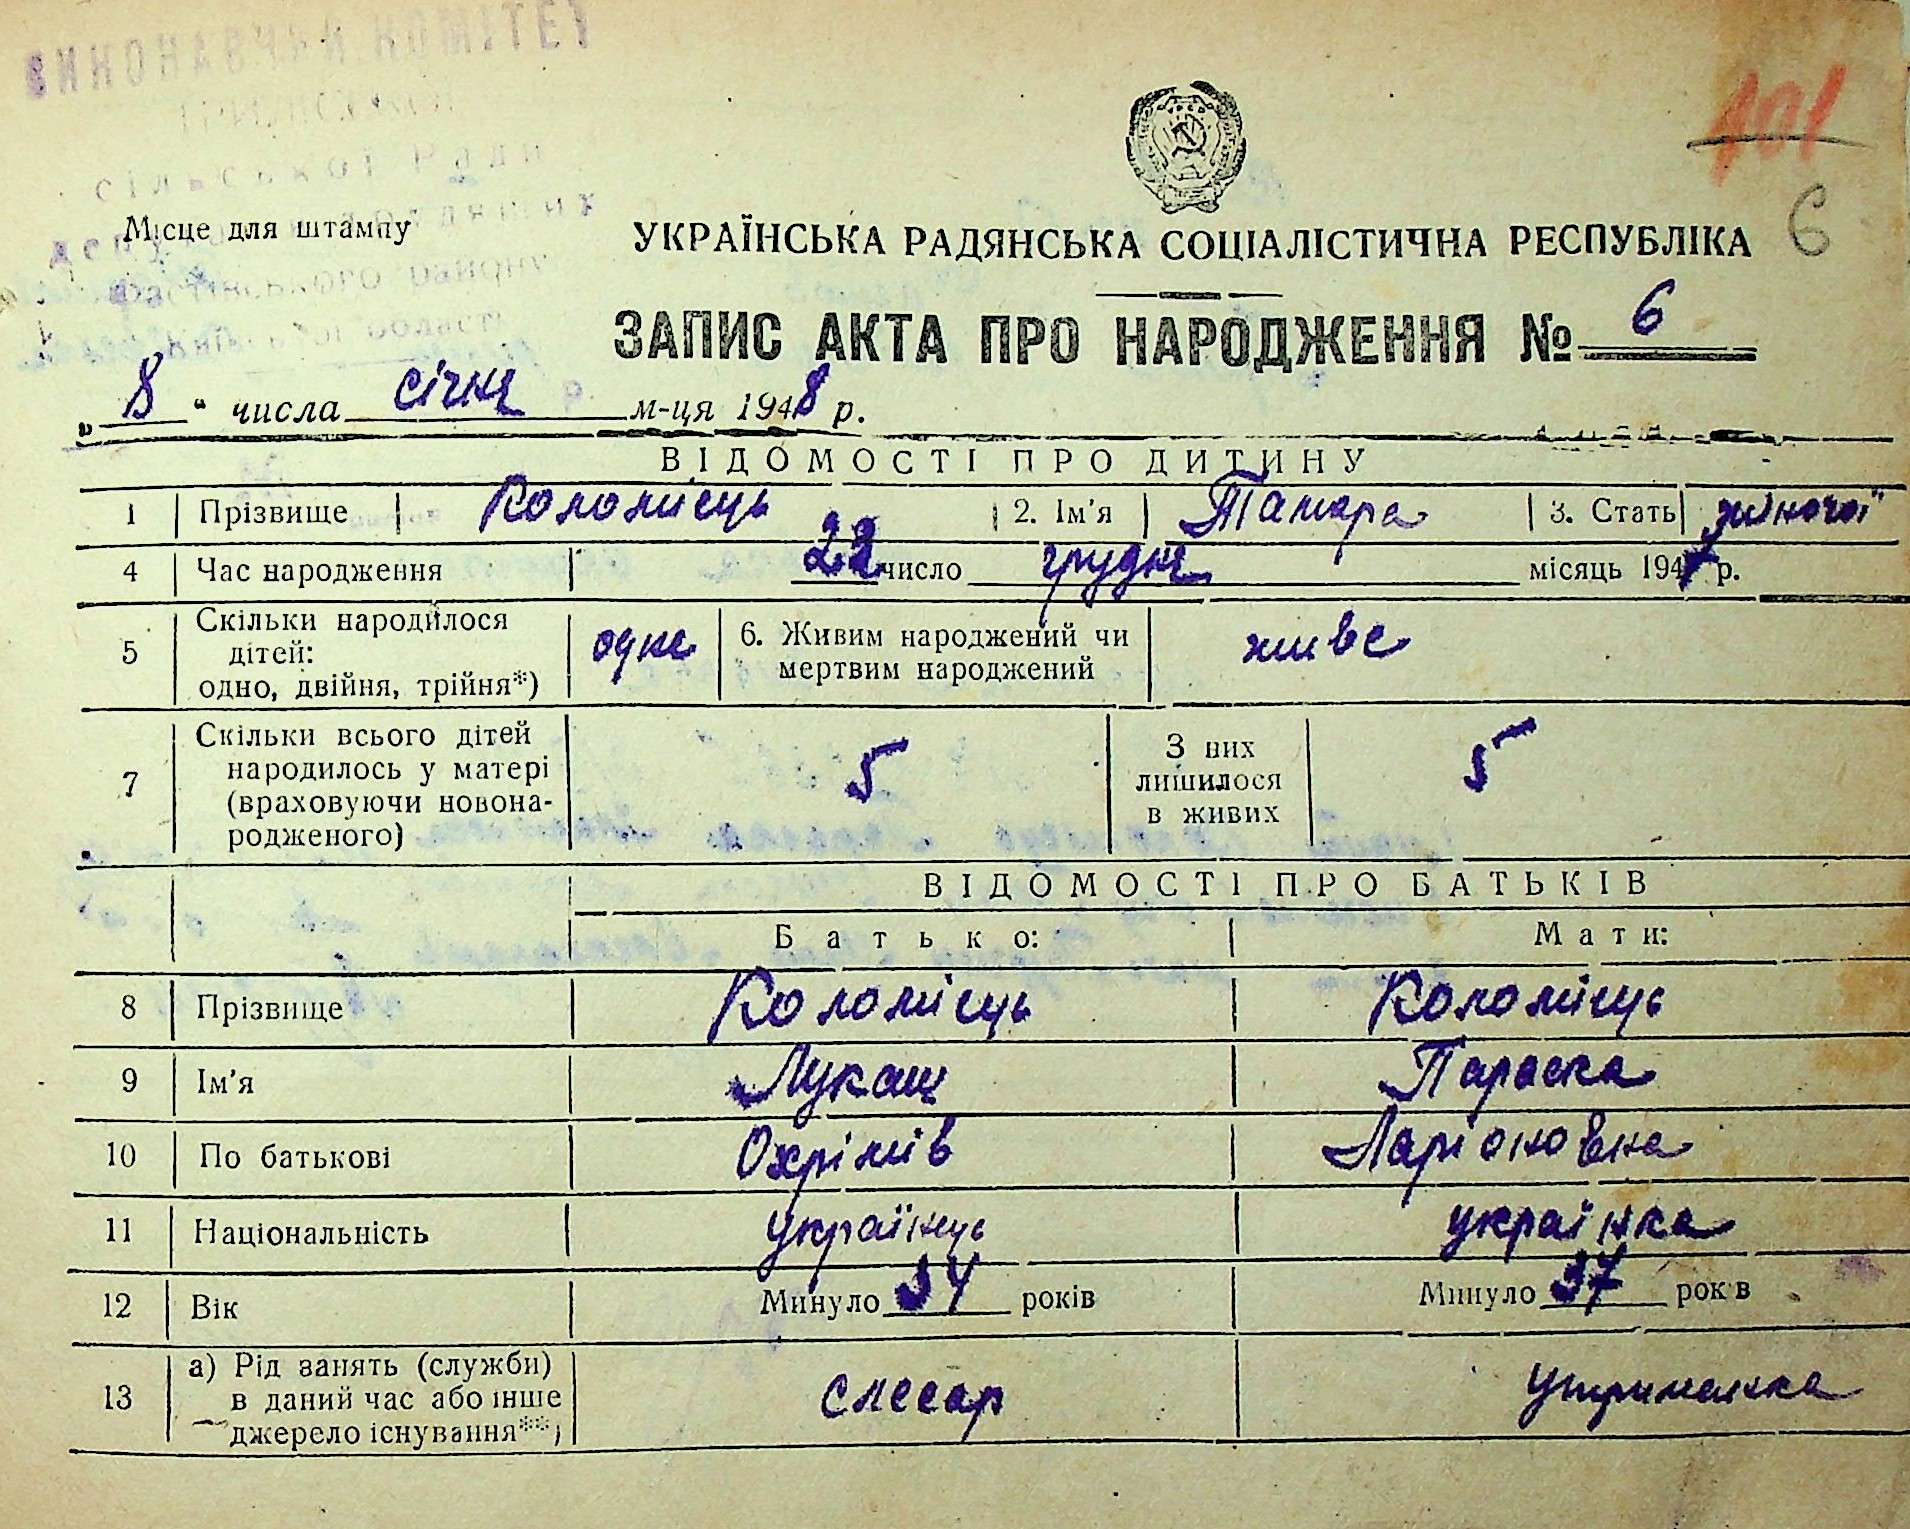 ВИНОНАВЧИЙ КОМІТЕТ
сільської Ради
Місце для штампу
району
101
6
УКРАЇНСЬКА РАДЯНСЬКА СОЦІАЛІСТИЧНА РЕСПУБЛІКА
ЗАПИС АКТА ПРО НАРОДЖЕННЯ № 6
„8“ числа січня м-ця 1948 р.
ВІДОМОСТІ ПРО ДИТИНУ
1 Прізвище Коломієць 2. Ім'я Тамара 3. Стать жіночої
4 Час народження 22 число грудня місяць 1947 р.
5 Скільки народилося дітей: одно, двійня, трійня*) одне 6. Живим народжений чи мертвим народжений живе
7 Скільки всього дітей народилось у матері (враховуючи новонародженого) 5 З них лишилося в живих 5
ВІДОМОСТІ ПРО БАТЬКІВ
Батько: Мати:
8 Прізвище Коломієць Коломієць
9 Ім'я Лукаш Параска
10 По батькові Охрімів Ларіоновна
11 Національність українець українка
12 Вік Минуло 34 років Минуло 37 років
13 а) Рід занять (служби) в даний час або інше джерело існування**) слесар утриманка